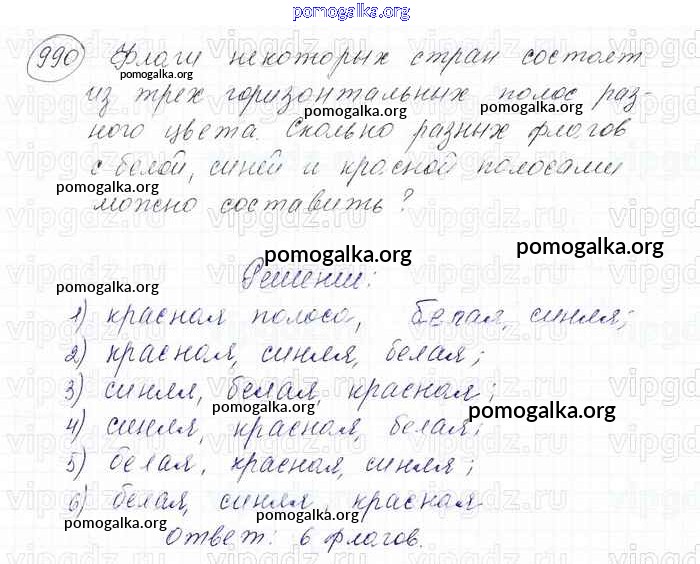 pomogalka.org
990 Флаги некоторых стран состоят
pomogalka.org
из трех горизонтальных полос раз-
pomogalka.org
ного цвета. Сколько разных флагов
pomogalka.org
с белой, синей и красной полосами
pomogalka.org
можно составить?
pomogalka.org
pomogalka.org
Решении:
pomogalka.org
1) красная полоса, белая, синяя;
2) красная, синяя, белая;
3) синяя, белая, красная;
pomogalka.org
pomogalka.org
4) синяя, красная, белая;
5) белая, красная, синяя;
6) белая, синяя, красная
pomogalka.org
pomogalka.org
Ответ: 6 флагов.